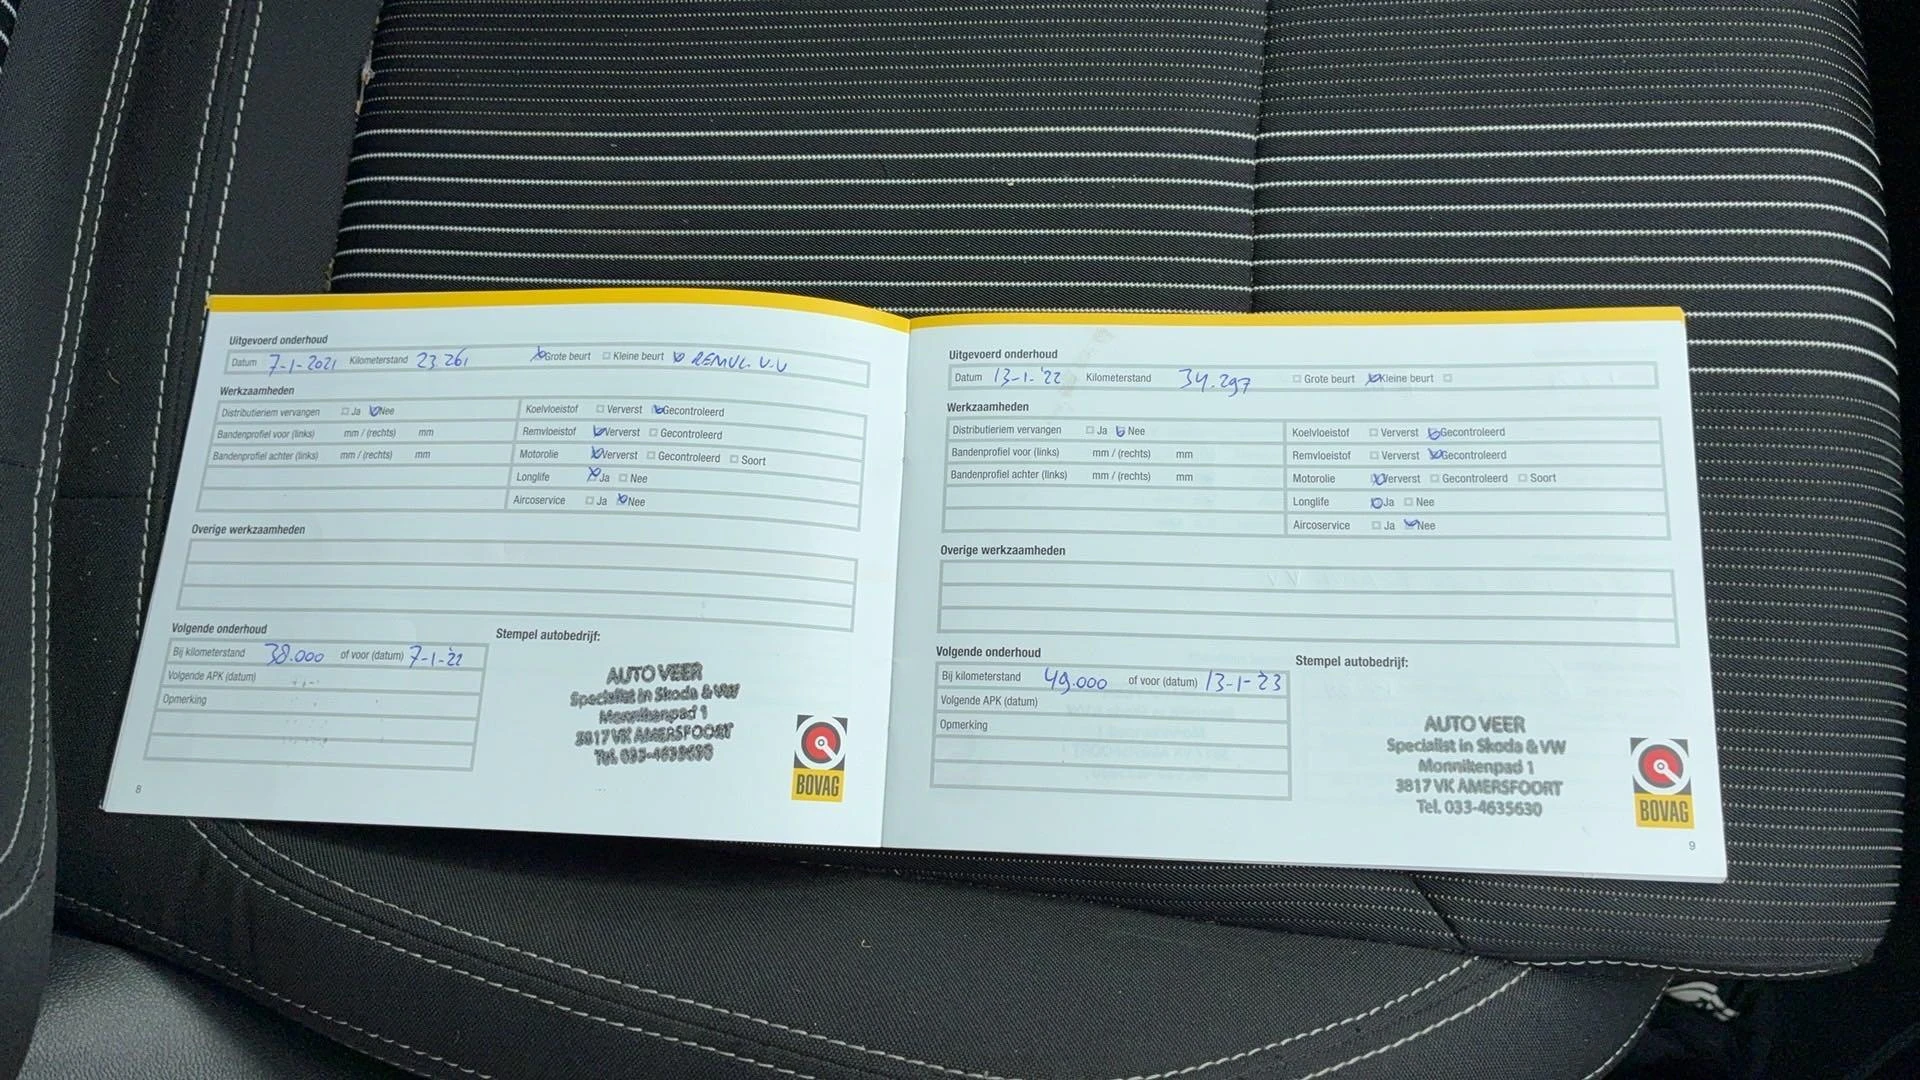 Uitgevoerd onderhoud
Datum 7-1-2021 Kilometerstand 23.261 Grote beurt Kleine beurt REMVL. V.V
Werkzaamheden
Distributieriem vervangen Ja Nee
Bandenprofiel voor (links) mm / (rechts) mm
Bandenprofiel achter (links) mm / (rechts) mm
Koelvloeistof Ververst Gecontroleerd
Remvloeistof Ververst Gecontroleerd
Motorolie Ververst Gecontroleerd Soort
Longlife Ja Nee
Aircoservice Ja Nee
Overige werkzaamheden
Volgende onderhoud
Bij kilometerstand 38.000 of voor (datum) 7-1-'22
Volgende APK (datum)
Opmerking
Stempel autobedrijf:
AUTO VEER
Specialist in Skoda & VW
Monnikenpad 1
3817 VK AMERSFOORT
Tel. 033-4635630
BOVAG
8
Uitgevoerd onderhoud
Datum 13-1-'22 Kilometerstand 34.297 Grote beurt Kleine beurt
Werkzaamheden
Distributieriem vervangen Ja Nee
Bandenprofiel voor (links) mm / (rechts) mm
Bandenprofiel achter (links) mm / (rechts) mm
Koelvloeistof Ververst Gecontroleerd
Remvloeistof Ververst Gecontroleerd
Motorolie Ververst Gecontroleerd Soort
Longlife Ja Nee
Aircoservice Ja Nee
Overige werkzaamheden
Volgende onderhoud
Bij kilometerstand 49.000 of voor (datum) 13-1-'23
Volgende APK (datum)
Opmerking
Stempel autobedrijf:
AUTO VEER
Specialist in Skoda & VW
Monnikenpad 1
3817 VK AMERSFOORT
Tel. 033-4635630
BOVAG
9